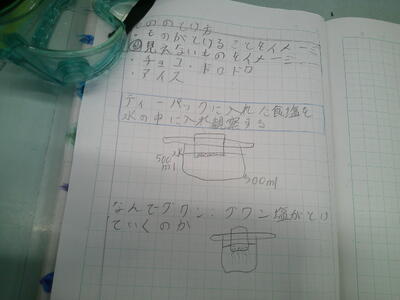 ・ののとけ方
・ものがとけることをイメージ
見えないものをイメージ
・チョコ・ドロドロ
・アイス
ティーバックに入れた食塩を
水の中に入れ観察する
水
500
ml
500ml
なんでグワン、グワン塩がとけ
ていくのか